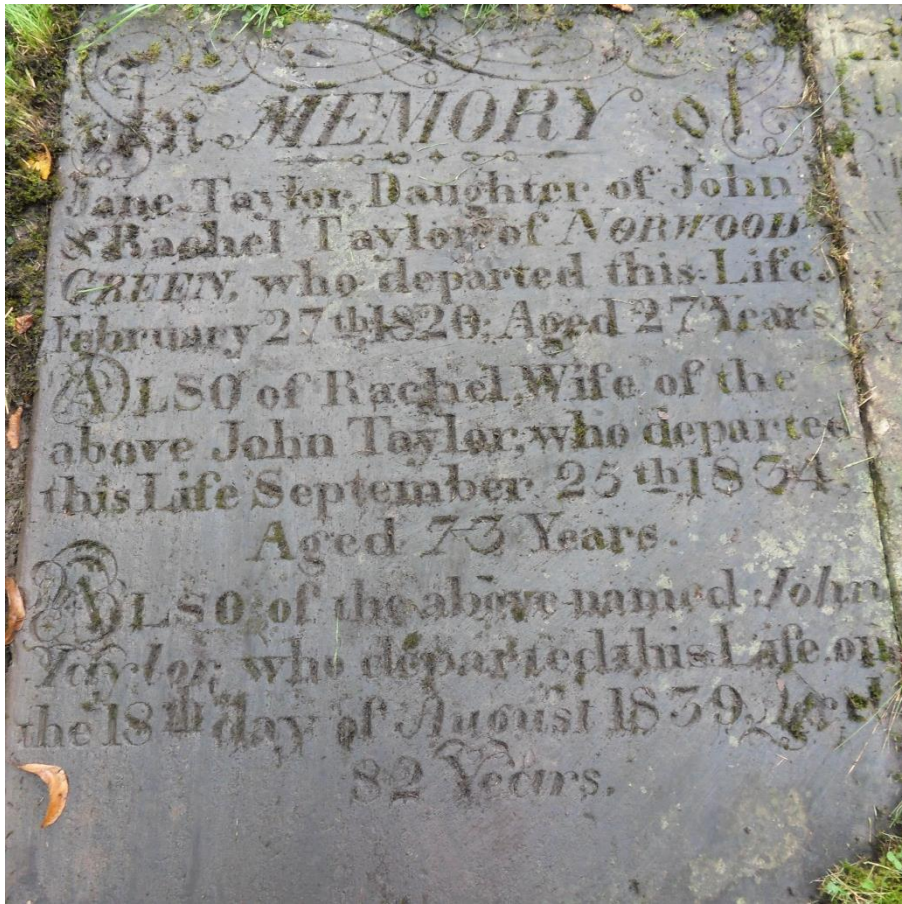 In MEMORY of
Jane Taylor, Daughter of John
& Rachel Taylor, of NORWOOD-
GREEN, who departed this Life,
February 27th, 1820; Aged 27 Years.
ALSO of Rachel, Wife of the
above John Taylor, who departed
this Life September 25th, 1834.
Aged 73 Years.
ALSO, of the above named John
Taylor, who departed this Life, on
the 18th day of August 1839, Aged
82 Years.